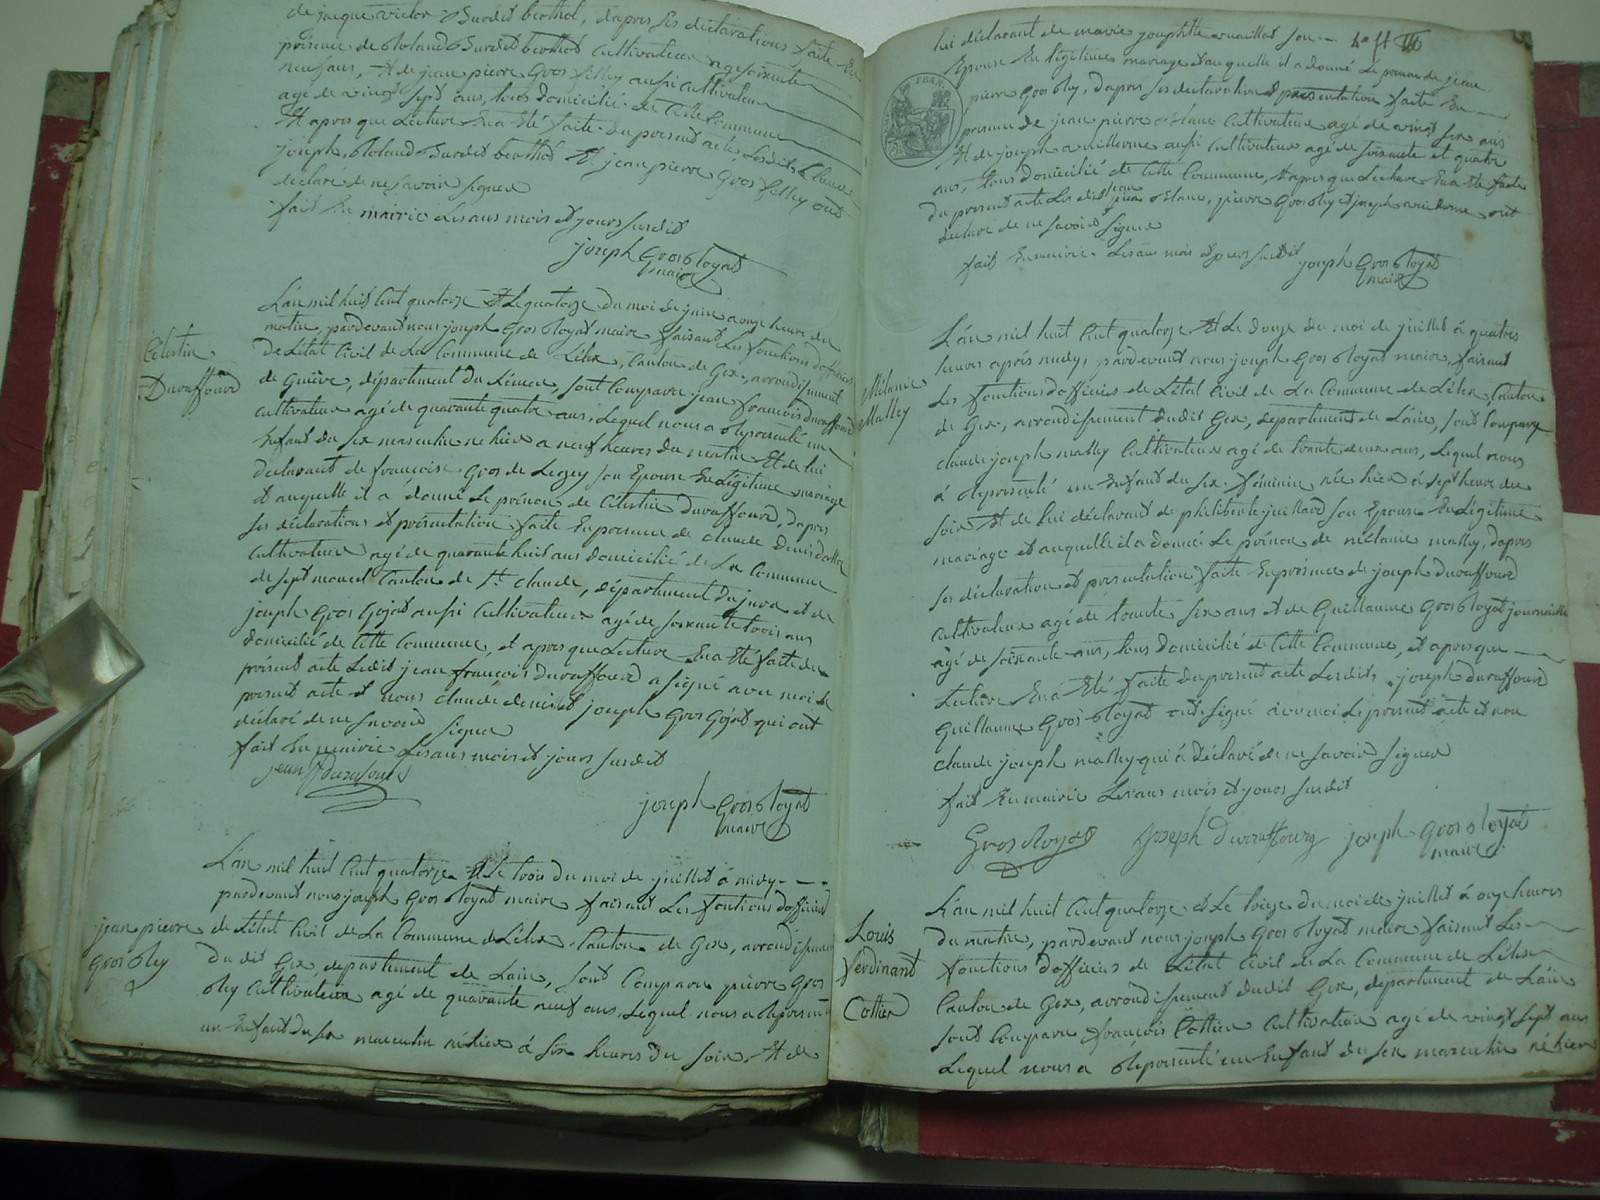 de jacque victor Burdet berthod, dapres ses déclarations faite En
présence de Roland Burdet berthod Cultivateur age soixante
neuf ans, Et de jean pierre Gros filley aussi Cultivateur
agé de vingt sept ans, tous domicilié de Cette Commune
Et apres que Lecture En a Eté faite du present acte, Lesdits Claude
joseph, Roland Burdet berthod Et jean pierre Gros filley ont
declaré de ne savoir signer
fait En mairie Les ans mois et jours susdit
joseph Gros Royat
maire
Célestin
Duraffourd
L'an mil huit Cent quatorze Et Le quatorze du moi de juin a onze heure du
matin, pardevant nous joseph Gros Royat maire faisant Les fonctions d'officier
de L'état Civil de La Commune de Lélex, Canton de Gex, arrondissement
de Genève, département du Léman, sont Comparu jean francois duraffourd
Cultivateur agé de quarante quatre ans, Lequel nous a représenté un
Enfant du sex masculin né hier a neuf heures du matin Et de lui
declarant de françoise Gros de Lezey son Epouse En Légitime mariage
Et auquelle il a donné Le prénon de Célestin Duraffourd, dapres
ses déclarations et présentation faite En presence de Claude Denis
Cultivateur agé de quarante huit ans domicilié de La Commune
de sept moncel Canton de St Claude, département du jura et de
joseph Gros Gojat aussi Cultivateur agé de soixante trois ans
domicilié de Cette Commune, et apres que Lecture En a Eté faite du
présent acte Ledit jean francois Duraffourd a signé avec moi Le
present acte et nous claude denis et joseph Gros Gojat qui ont
déclaré de ne savoir signer
fait En mairie Les ans mois et jours susdit
joseph Gros Royat
maire
jean pierre
Gros bley
L'an mil huit Cent quatorze Et Le trois du moi de juillet à midy
pardevant nous joseph Gros Royat maire faisant Les fontions d'officier
de L'état Civil de La Commune de Lélex Canton de Gex, arrondissement
du dit Gex, departement de Lain, sont Comparu pierre Gros
bley Cultivateur agé de quarante neuf ans, Lequel nous a représenté
un Enfant du sex masculin né hier à six heures du soir Et de
lui déclarant de marie josephtte son
Epouse En Légitimes mariage Et auquelle il a donné Le prénon de jean
pierre Gros bley, Dapres ses declarations et presentation faite En
presence de jean pierre blanc Cultivateur agé de vingt six ans
Et de joseph aussi Cultivateur agé de soixante et quatre
ans, tous domicilié de Cette Commune, Et apres que Lecture En a Eté faite
du present acte Les dit jean blanc, pierre Gros bley Et joseph ont
declare de ne savoir signer
fait En mairie Les ans mois et jours susdit joseph Gros Royat
maire
Mélanie
Malley
L'an mil huit Cent quatorze Et Le douze du moi de juillet à quatres
heures après midy, pardevant nous joseph Gros Royat maire, faisant
Les fonctions d'officier de L'état Civil de La Commune de Lélex, Canton
de Gex, arrondissement dudit Gex, département de Lain, sont Comparu
claude joseph malley Cultivateur agé de trente deux ans, Lequel nous
à représenté un Enfant du sex féminin née hier à sept heure du
soir Et de Lui déclarant de philiberte juillard son Epouse En Légitime
mariage Et auquelle il a donné Le prénon de mélanie malley, dapres
ses déclaration et présentation faite En présence de joseph Duraffourd
Cultivateur agé de trente six ans Et de Guillaume Gros Royat journalier
âgé de soixante ans, tous domicilié de Cette Commune, et apres que
Lecture En à Eté faite du present acte Lesdits joseph duraffourd
Guillaume Gros Royat ont signé avec moi Le present acte et non
claude joseph malley qui à déclaré de ne savoir signer
fait En mairie Les ans mois et jours susdit
Gros Royat joseph Duraffourg joseph Gros Royat
maire
Louis
ferdinant
Cottier
L'an mil huit Cent quatorze et Le treize du moi de juillet à onze heures
du matin, pardevant nous joseph Gros Royat maire faisant Les
fonctions d'officier de L'état Civil de La Commune de Lélex
Canton de Gex, arrondissement dudit Gex, département de Lain
sont Comparu françois Cottier Cultivateur agé de vingt sept ans
Lequel nous a représenté un Enfant du sex masculin né hier